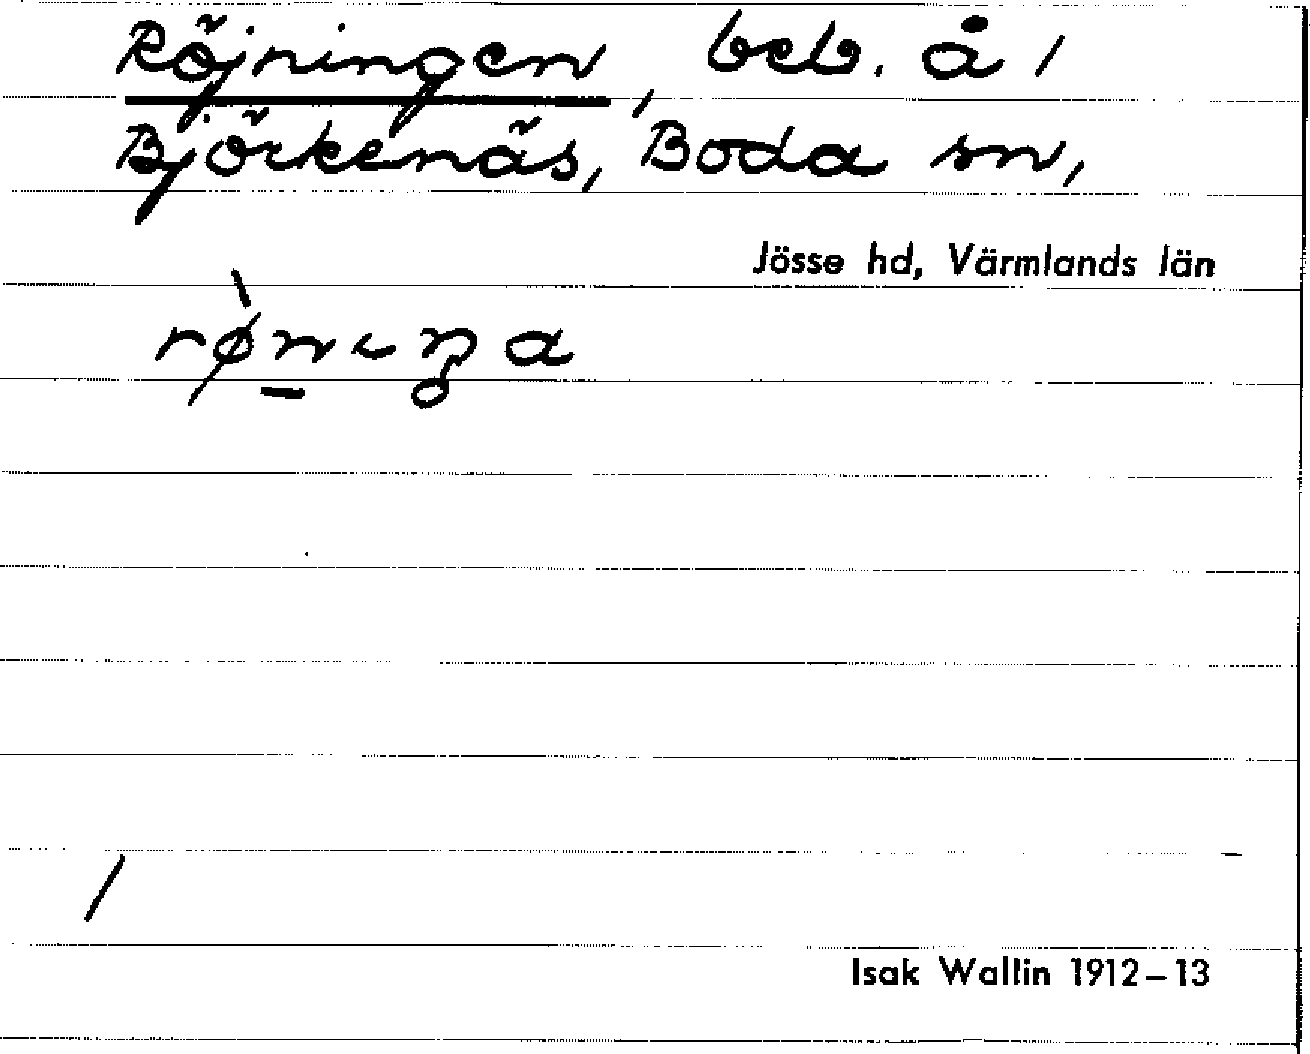 Röjningen, beb. å 1
Björkenäs, Boda sn,
Jösse hd, Värmlands län
Isak Wallin 1912–13